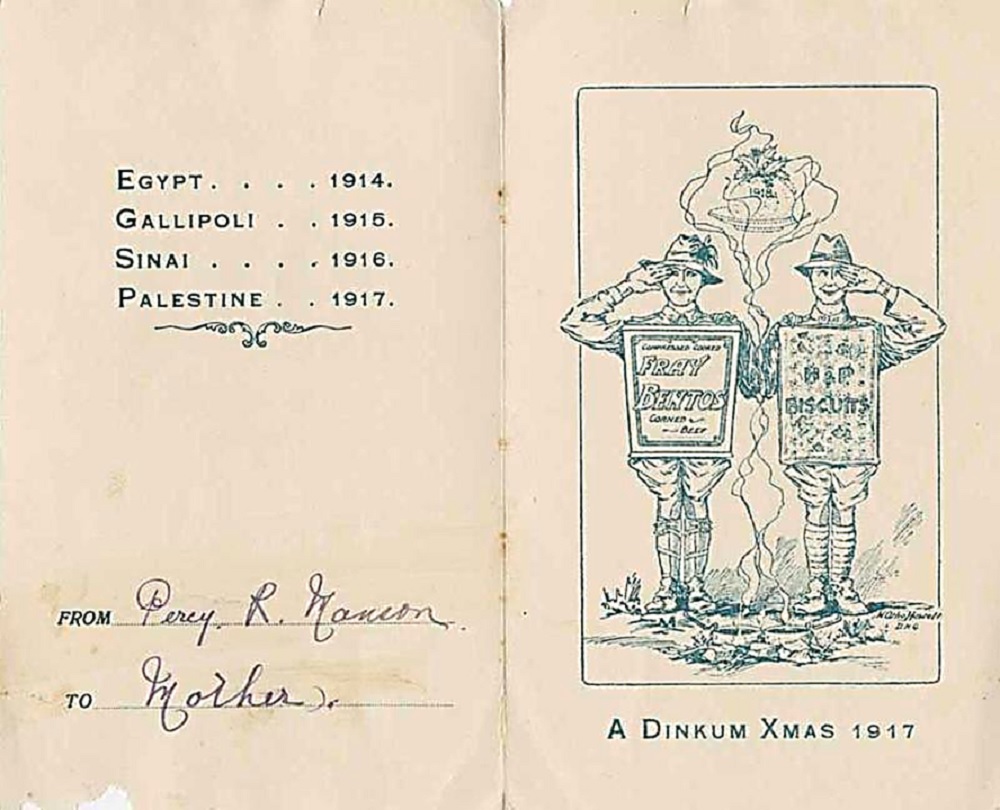 EGYPT. . . . . 1914.
GALLIPOLI . . 1915.
SINAI . . . . 1916.
PALESTINE . . 1917.
FROM Percy. R. Manson.
TO Mother.
1918
COMPRESSED COOKED
FRAY
BENTOS
CORNED
BEEF
BISCUITS
A DINKUM XMAS 1917